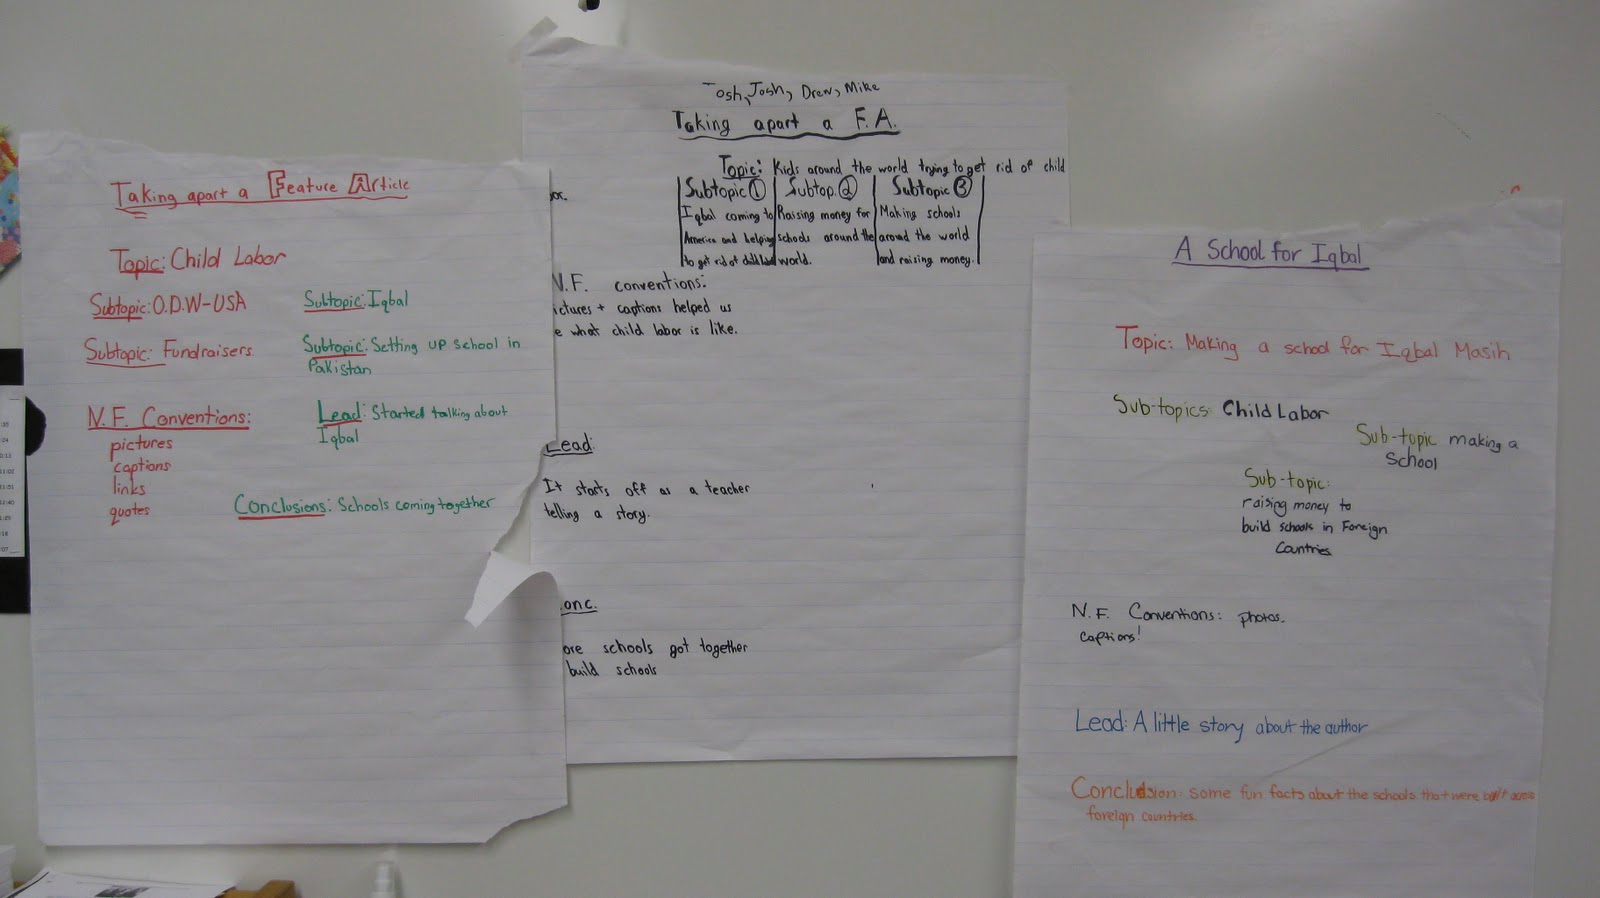 Taking apart a Feature Article
Topic: Child Labor
Subtopic: O.D.W-USA
Subtopic: Iqbal
Subtopic: Fundraisers
Subtopic: Setting up school in
Pakistan
N.F. Conventions:
pictures
captions
links
quotes
Lead: Started talking about
Iqbal
Conclusions: Schools coming together
Tosh, Josh, Drew, Mike
Taking apart a F.A.
Topic: Kids around the world trying to get rid of child
Subtopic 1
Iqbal coming to
America and helping
to get rid of
Subtop. 2
Raising money for
schools around the
world.
Subtopic 3
Making schools
around the world
and raising money.
N.F. conventions:
ictures + captions helped us
e what child labor is like.
Lead:
It starts off as a teacher
telling a story.
onc.
ore schools got together
build schools
A School for Iqbal
Topic: Making a school for Iqbal Masih
Sub-topics: Child Labor
Sub-topic making a
School
Sub-topic:
raising money to
build schools in Foreign
Countries
N.F. Conventions: photos.
captions!
Lead: A little story about the author
Conclusion: Some fun facts about the schools that were built across
foreign countries.